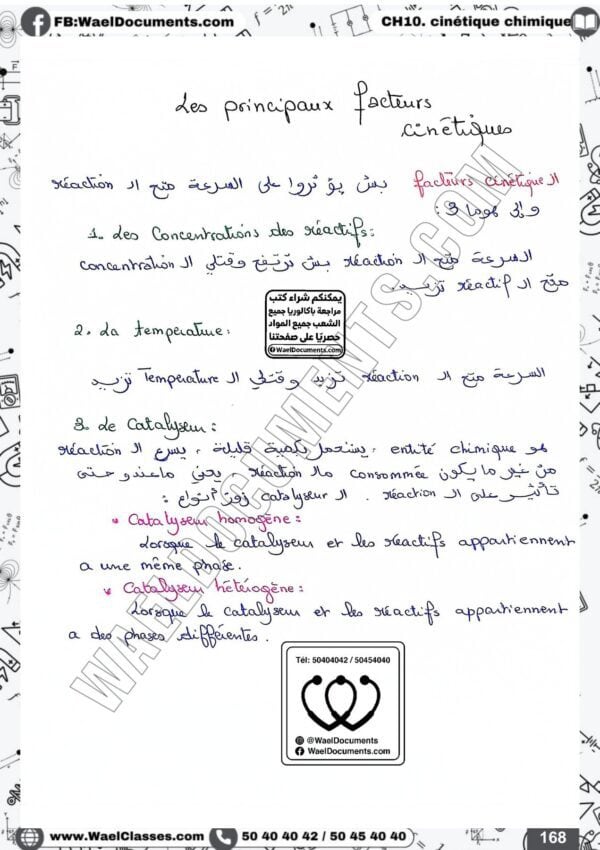 FB:WaelDocuments.com
CH10. cinétique chimique
Les principaux facteurs
cinétiques
الـ facteurs cinétique بش يؤثروا على السرعة متع الـ réaction
و إلي هوما 3:
1. Les Concentrations des réactifs:
السرعة متع الـ réaction بش ترتفع وقتلي الـ concentration
متع الـ réactif تزيد.
يمكنكم شراء كتب
مراجعة باكالوريا جميع
الشعب جميع المواد
حصريًا على صفحتنا
WaelDocuments.com
2. La température:
السرعة متع الـ réaction تزيد وقتلي الـ Température تزيد
3. Le Catalyseur:
هو entité chimique، يستعمل بكمية قليلة، يسرع الـ réaction
من غير ما يكون consommée مالـ réaction، يعني ماعندو حتى
تأثير على الـ réaction. الـ catalyseur زوز أنواع:
* Catalyseur homogène:
Lorsque le catalyseur et les réactifs appartiennent
a une même phase.
* Catalyseur hétérogène:
Lorsque le catalyseur et les réactifs appartiennent
a des phases différentes.
WAELDOCUMENTS.COM
Tél: 50404042 / 50454040
@WaelDocuments
WaelDocuments.com
www.WaelClasses.com
50 40 40 42 / 50 45 40 40
168